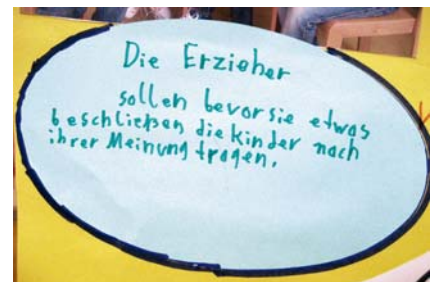 Die Erzieher
sollen bevor sie etwas
beschließen die kinder nach
ihrer Meinung fragen.